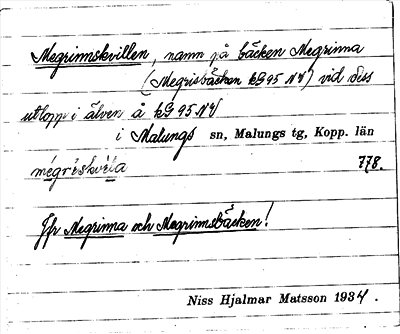 Megrinnskvillen, namn på bäcken Megrinna
(Megrisbäcken kG 95 NV) vid dess
utlopp i älven å kG 95 NV
i Malungs sn, Malungs tg, Kopp. län
778.
Jfr Megrinna och Megrinnsbäcken!
Niss Hjalmar Matsson 1934.